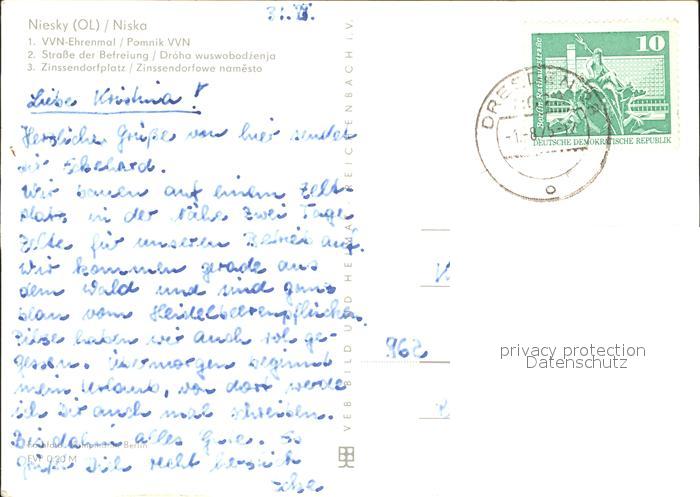 31. VII.
Niesky (OL) / Niska
1. VVN-Ehrenmal / Pomnik VVN
2. Straße der Befreiung / Dróha wuswobodźenja
3. Zinssendorfplatz / Zinssendorfowe naměsto
Liebe Kristina!
Herzliche Grüße von hier sendet
Dir Ekkehard.
Wir bauen auf einem Zelt-
platz in der Nähe zwei Tage
Zelte für unseren Betrieb auf.
Wir kommen gerade aus
dem Wald und sind ganz
blau vom Heidelbeerenpflücken.
Pilze haben wir auch ge-
gessen. Übermorgen beginnt
mein Urlaub, von dort werde
ich Dir auch mal schreiben.
Bis dahin alles Gute. Es
grüßt Dich recht herzlich
VEB BILD UND HEIMAT REICHENBACH I.V.
Berlin
EVP 0,20 M
Berlin, Rathausstraße
10
DEUTSCHE DEMOKRATISCHE REPUBLIK
DRESDEN
-1.-8.75-
privacy protection
Datenschutz